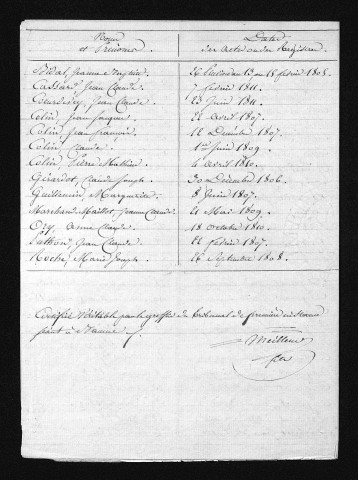 Noms et Prénoms. Dates des actes ou des Registres
Bidal, Jeanne 26 Pluviose an 13 ou 15 février 1805.
Cassard, Jean Claude. 7 février 1811.
Jean Claude. 23 Juin 1811.
Colin, Jean Jacques 21 avril 1807.
Colin, Jean francois 12 Decembre 1807.
Colin, Claude. 1er Juin 1809.
Colin, Pierre Mathieu 4 avril 1810.
Girardot, Claude Joseph. 30 Décembre 1806.
Guillemin, Marguerite. 8 Juin 1807.
Marchand Maillot, Jeanne Claude. 21 Mai 1809.
Ory, anne Claude. 18 octobre 1810.
Puthon, Jean Claude. 12 février 1807.
Roche, Marie Joseph. 16 Septembre 1808.
Certifié Véritable par le greffier du Tribunal de première instance
séant à